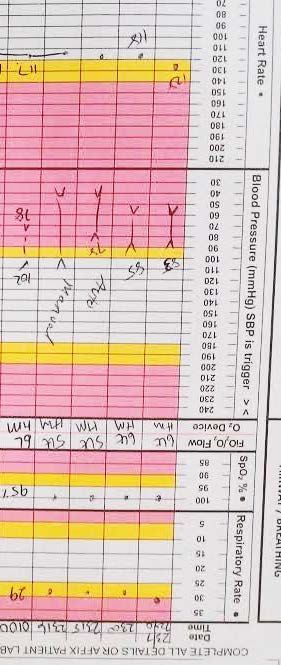 COMPLETE ALL DETAILS OR AFFIX PATIENT LAB
Date
Time
Respiratory Rate •
35
30
29
25
20
15
10
5
SpO₂ % •
100
95
95%
90
85
FiO₂/O₂ Flow
6L 6L 5L 6L
O₂ Device
HM HM HM HM HM
Blood Pressure (mmHg) SBP is trigger
240
230
220
210
200
190
180
170
160
150
140
130
120
110
100
90
80
70
60
50
40
30
83 85 102
78
Manual
Heart Rate •
210
200
190
180
170
160
150
140
130
120
110
100
90
80
70
118
117
/ BREATHING